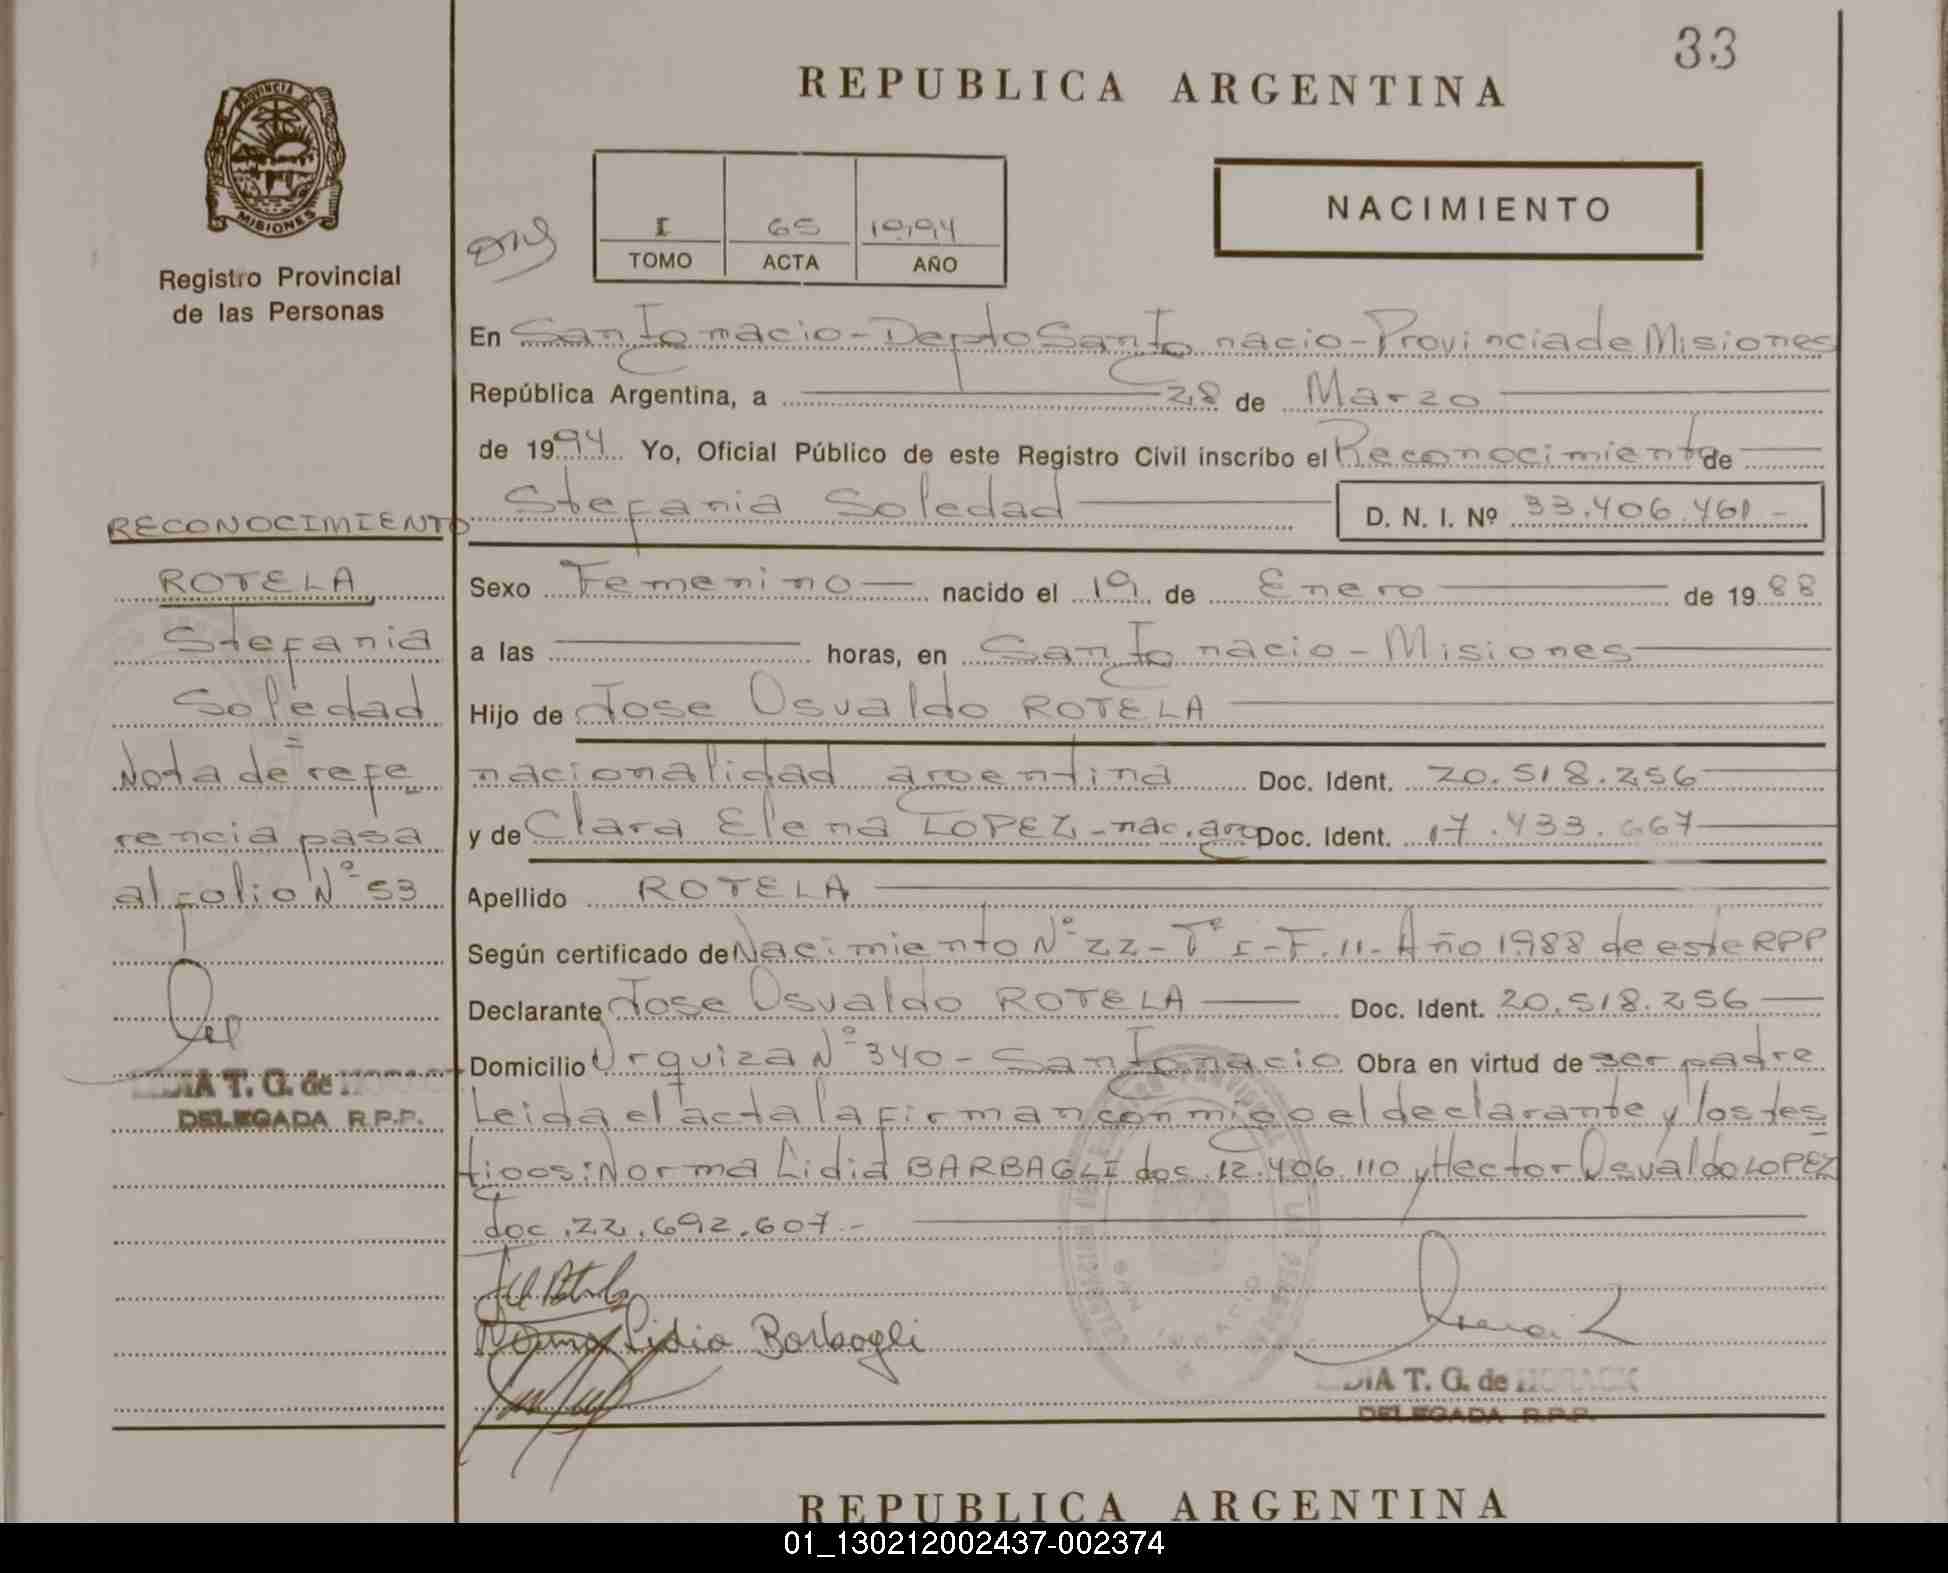 33
REPUBLICA ARGENTINA
PROVINCIA DE
MISIONES
Registro Provincial
de las Personas
I 65 1994
TOMO ACTA AÑO
NACIMIENTO
En San Ignacio - Depto San Ignacio - Provincia de Misiones
República Argentina, a 28 de Marzo
de 1994 Yo, Oficial Público de este Registro Civil inscribo el Reconocimiento de
Stefania Soledad D. N. I. Nº 33.406.461 -
RECONOCIMIENTO
ROTELA
Stefania
Soledad
Nota de refe
rencia pasa
al folio Nº 53
DIA T. G. de HORACK
DELEGADA R.P.P.
Sexo Femenino nacido el 19 de Enero de 1988
a las horas, en San Ignacio - Misiones
Hijo de Jose Osvaldo ROTELA
nacionalidad argentina Doc. Ident. 20.518.256
y de Clara Elena LOPEZ - nac. arg Doc. Ident. 17.433.667
Apellido ROTELA
Según certificado de Nacimiento Nº 22 - Tº I - F. 11 - Año 1988 de este RPP
Declarante Jose Osvaldo ROTELA Doc. Ident. 20.518.256
Domicilio Urquiza Nº 340 - San Ignacio Obra en virtud de ser padre
Leida el acta la firman conmigo el declarante y los tes
tigos: Norma Lidia BARBAGLI dos. 12.406.110 y Hector Osvaldo LOPEZ
doc. 22.692.607.-
Norma Lidia Barbagli
SAN IGNACIO
DIA T. G. de HORACK
DELEGADA R.P.P.
REPUBLICA ARGENTINA
01_130212002437-002374